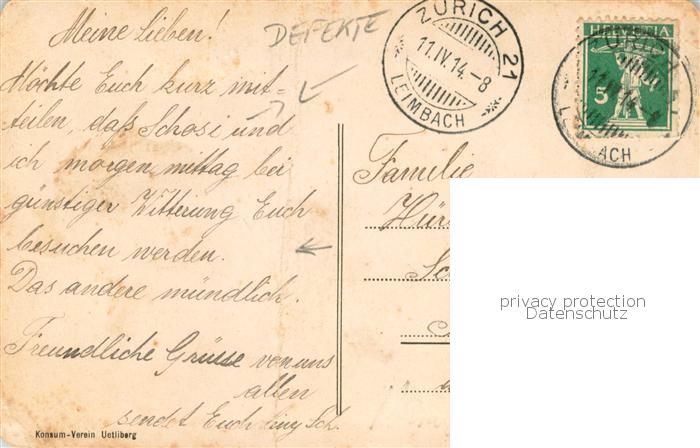 Meine Lieben!
Möchte Euch kurz mit=
teilen, daß Schosi und
ich morgen mittag bei
günstiger Witterung Euch
besuchen werden.
Das andere mündlich.
Freundliche Grüsse von uns
allen
sendet Euch
Konsum-Verein Uetliberg
DEFEKTE
ZÜRICH 21
11.IV.14.-8
LEIMBACH
HELVETIA
5
ACH
Familie
privacy protection
Datenschutz